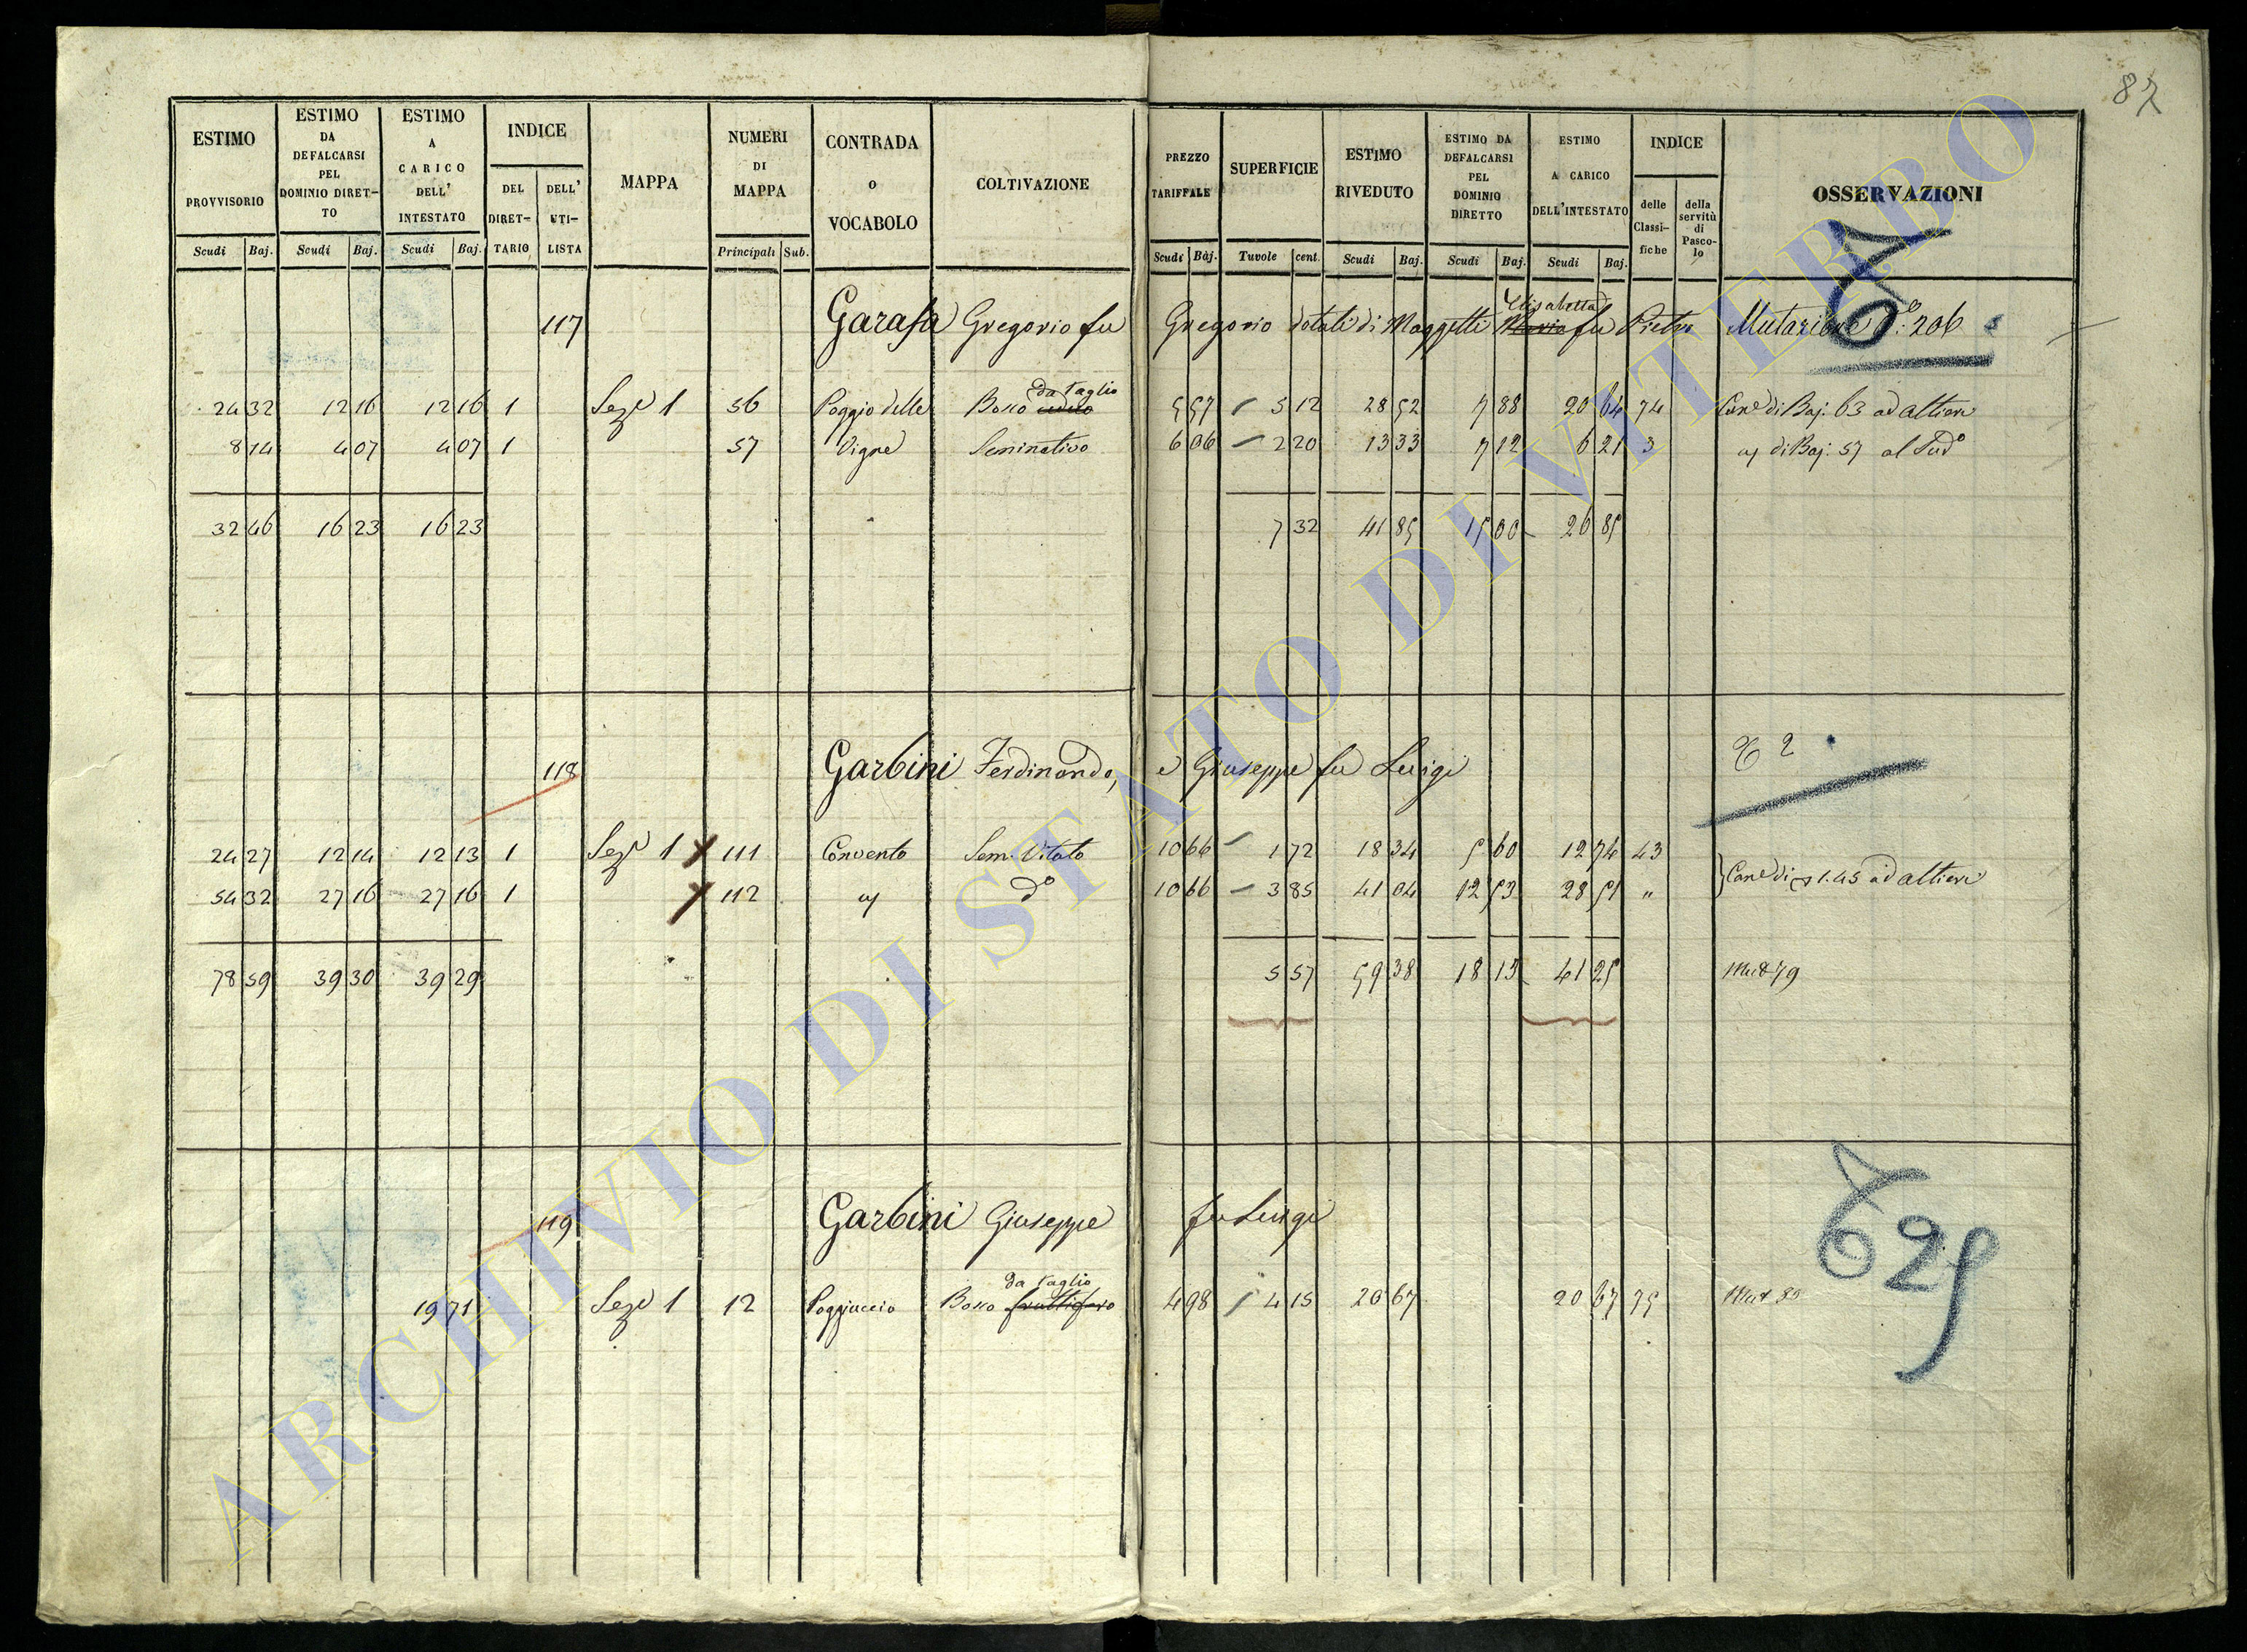 87
ESTIMO PROVVISORIO
ESTIMO DA DEFALCARSI PEL DOMINIO DIRETTO
ESTIMO A CARICO DELL' INTESTATO
INDICE
DEL DIRETTARIO
DELL' UTILISTA
MAPPA
NUMERI DI MAPPA
CONTRADA O VOCABOLO
COLTIVAZIONE
PREZZO TARIFFALE
SUPERFICIE
ESTIMO RIVEDUTO
ESTIMO DA DEFALCARSI PEL DOMINIO DIRETTO
ESTIMO A CARICO DELL'INTESTATO
INDICE
delle Classifiche
della servitù di Pascolo
OSSERVAZIONI
Scudi Baj. Scudi Baj. Scudi Baj. Principali Sub. Scudi Baj. Tavole cent. Scudi Baj. Scudi Baj. Scudi Baj.
Elisabetta
117 Garafa Gregorio fu Gregorio dotali di Maggetti Maria fu Pietro Mutazione N.° 206
da taglio
24 32 12 16 12 16 1 Sez.e 1 56 Poggio delle Bosco 5 57 5 12 28 52 7 88 20 64 74 Can.e di Baj. 63 ad Altieri
8 14 4 07 4 07 1 57 Vigne Seminativo 6 06 2 20 13 33 7 12 6 21 3 di Baj. 57 al Sud.o
32 46 16 23 16 23 7 32 41 85 15 00 26 85
118 Garbini Ferdinando, e Giuseppe fu Luigi
2
24 27 12 14 12 13 1 Sez.e 1 111 Convento Sem. Vitato 10 66 1 72 18 34 5 60 12 74 43
54 32 27 16 27 16 1 112 d.o 10 66 3 85 41 04 12 53 28 51 "
Can.e di 1.45 ad Altieri
78 59 39 30 39 29 5 57 59 38 18 13 41 25 Mut 79
119 Garbini Giuseppe fu Luigi
29
da taglio
19 71 Sez.e 1 12 Poggiaccio Bosco fruttifero 4 98 4 15 20 67 20 67 75 Mut 80
ARCHIVIO DI STATO DI VITERBO